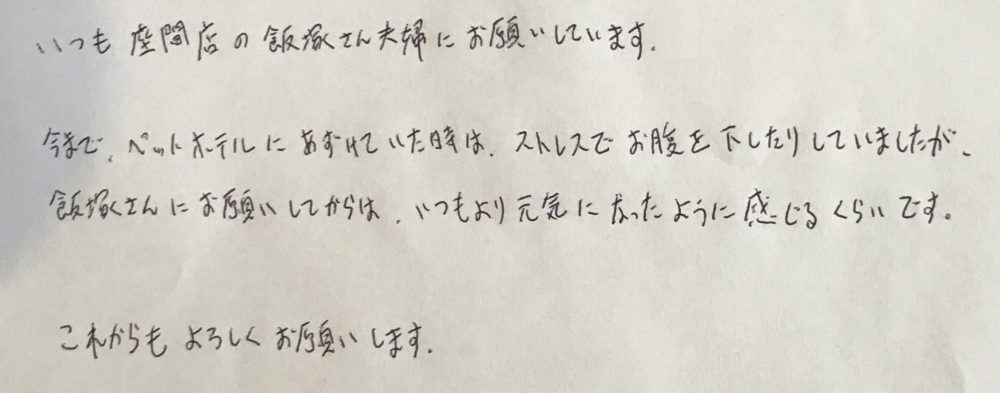 いつも座間店の飯塚さん夫婦にお願いしています.
今まで、ペットホテルにあずけていた時は、ストレスでお腹を下したりしていましたが、
飯塚さんにお願いしてからは、いつもより元気になったように感じるくらいです。
これからもよろしくお願いします.